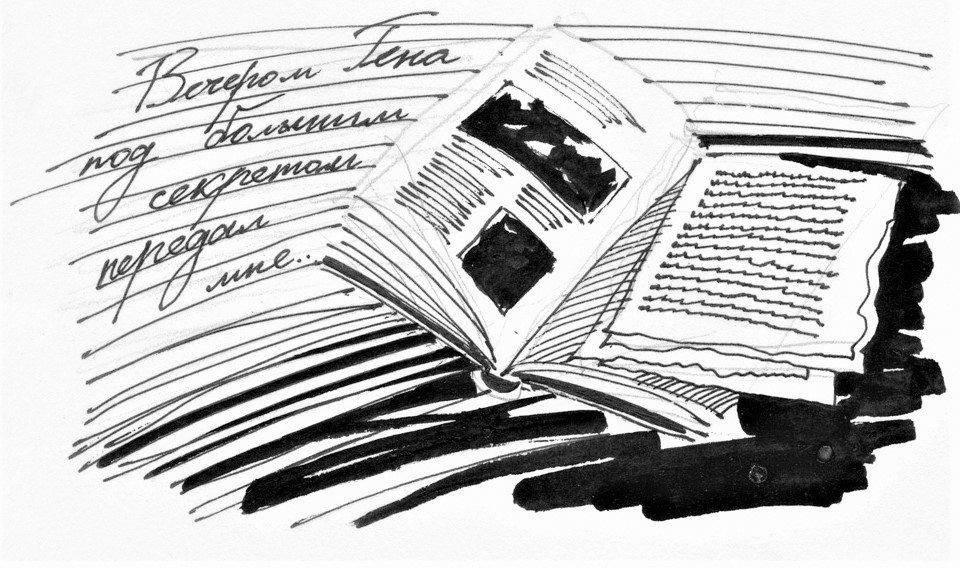 Вечером Гена
под большим
секретом
передал
мне...